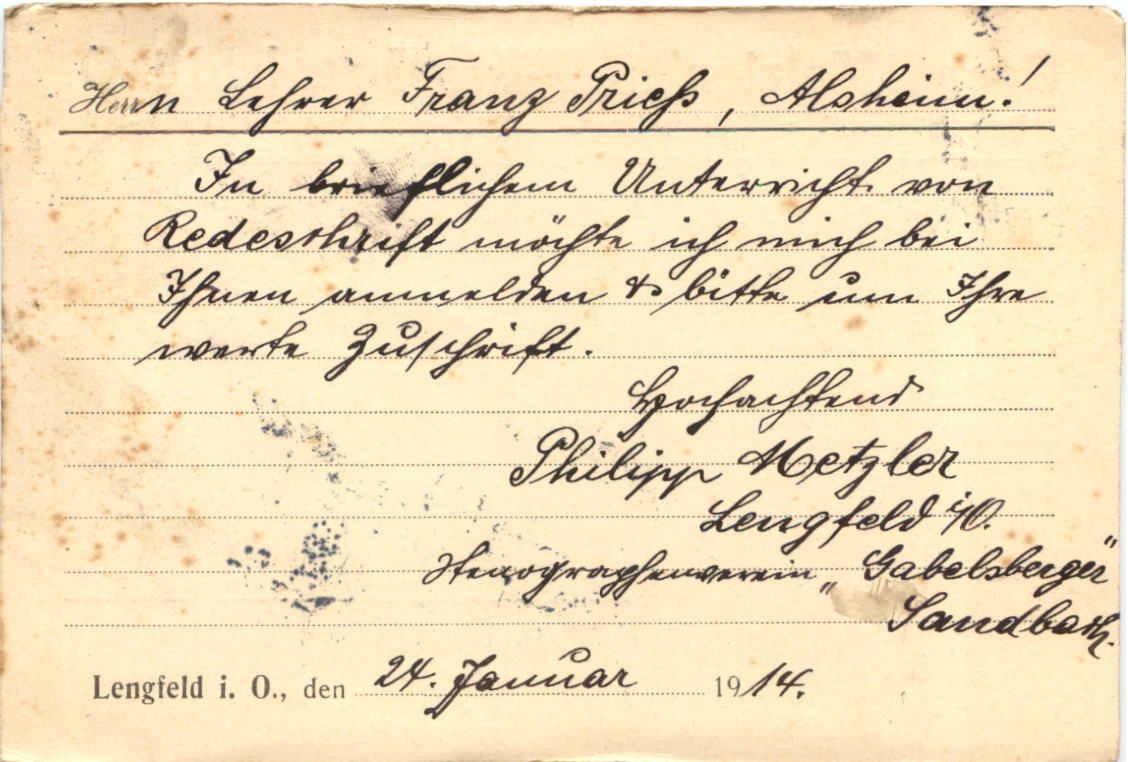 Herrn Lehrer Franz Prieß, Alsheim!
In brieflichem Unterricht von
Redeschrift möchte ich mich bei
Ihnen anmelden & bitte um Ihre
werte Zuschrift.
Hochachtend
Philipp Metzler
Lengfeld i/O.
Stenographenverein „Gabelsberger"
Sandbach.
Lengfeld i. O., den 24. Januar 1914.